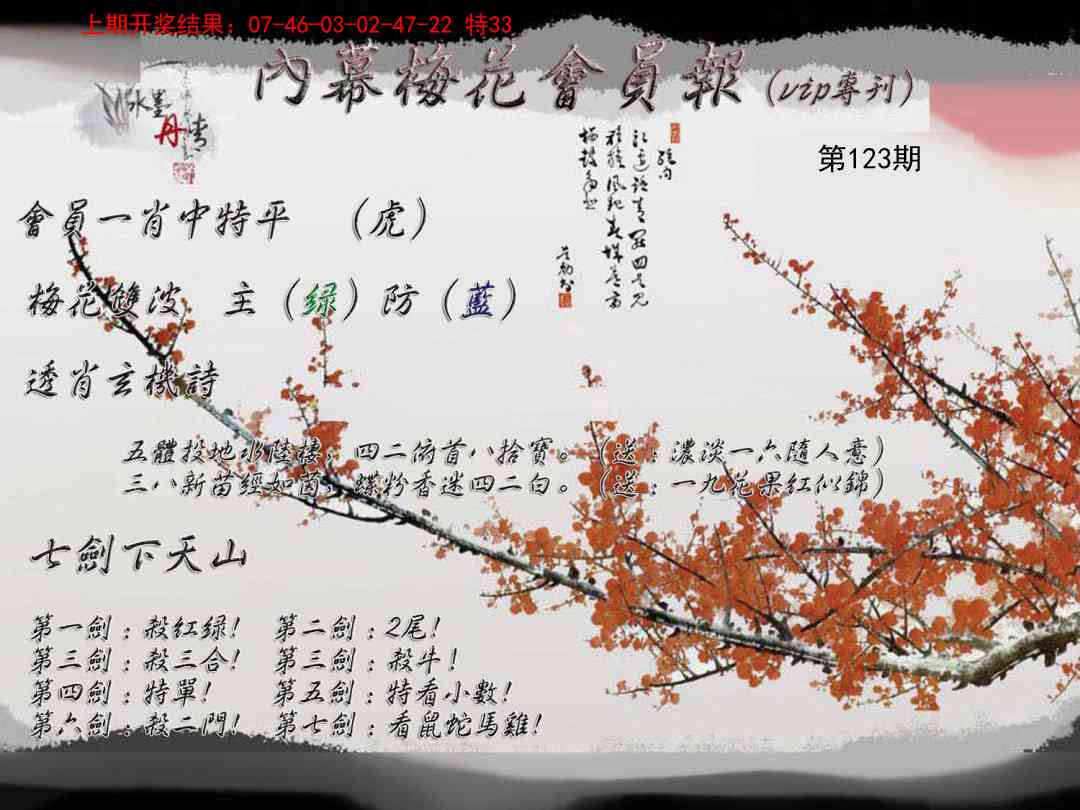 上期开奖结果：07-46-03-02-47-22 特33
內幕梅花會員報（vip專刊）
水墨
丹青
第123期
會員一肖中特平 （虎）
梅花雙波 主（绿）防（藍）
透肖玄機詩
五體投地水陸棲，四二俯首八拾寶。（送：濃淡一六隨人意）
三八新苗經如茵，蝶粉香迷四二白。（送：一九花果紅似錦）
七劍下天山
第一劍：殺紅绿！ 第二劍：2尾！
第三劍：殺三合！ 第三劍：殺牛！
第四劍：特單！ 第五劍：特看小數！
第六劍：殺二門！ 第七劍：看鼠蛇馬雞！